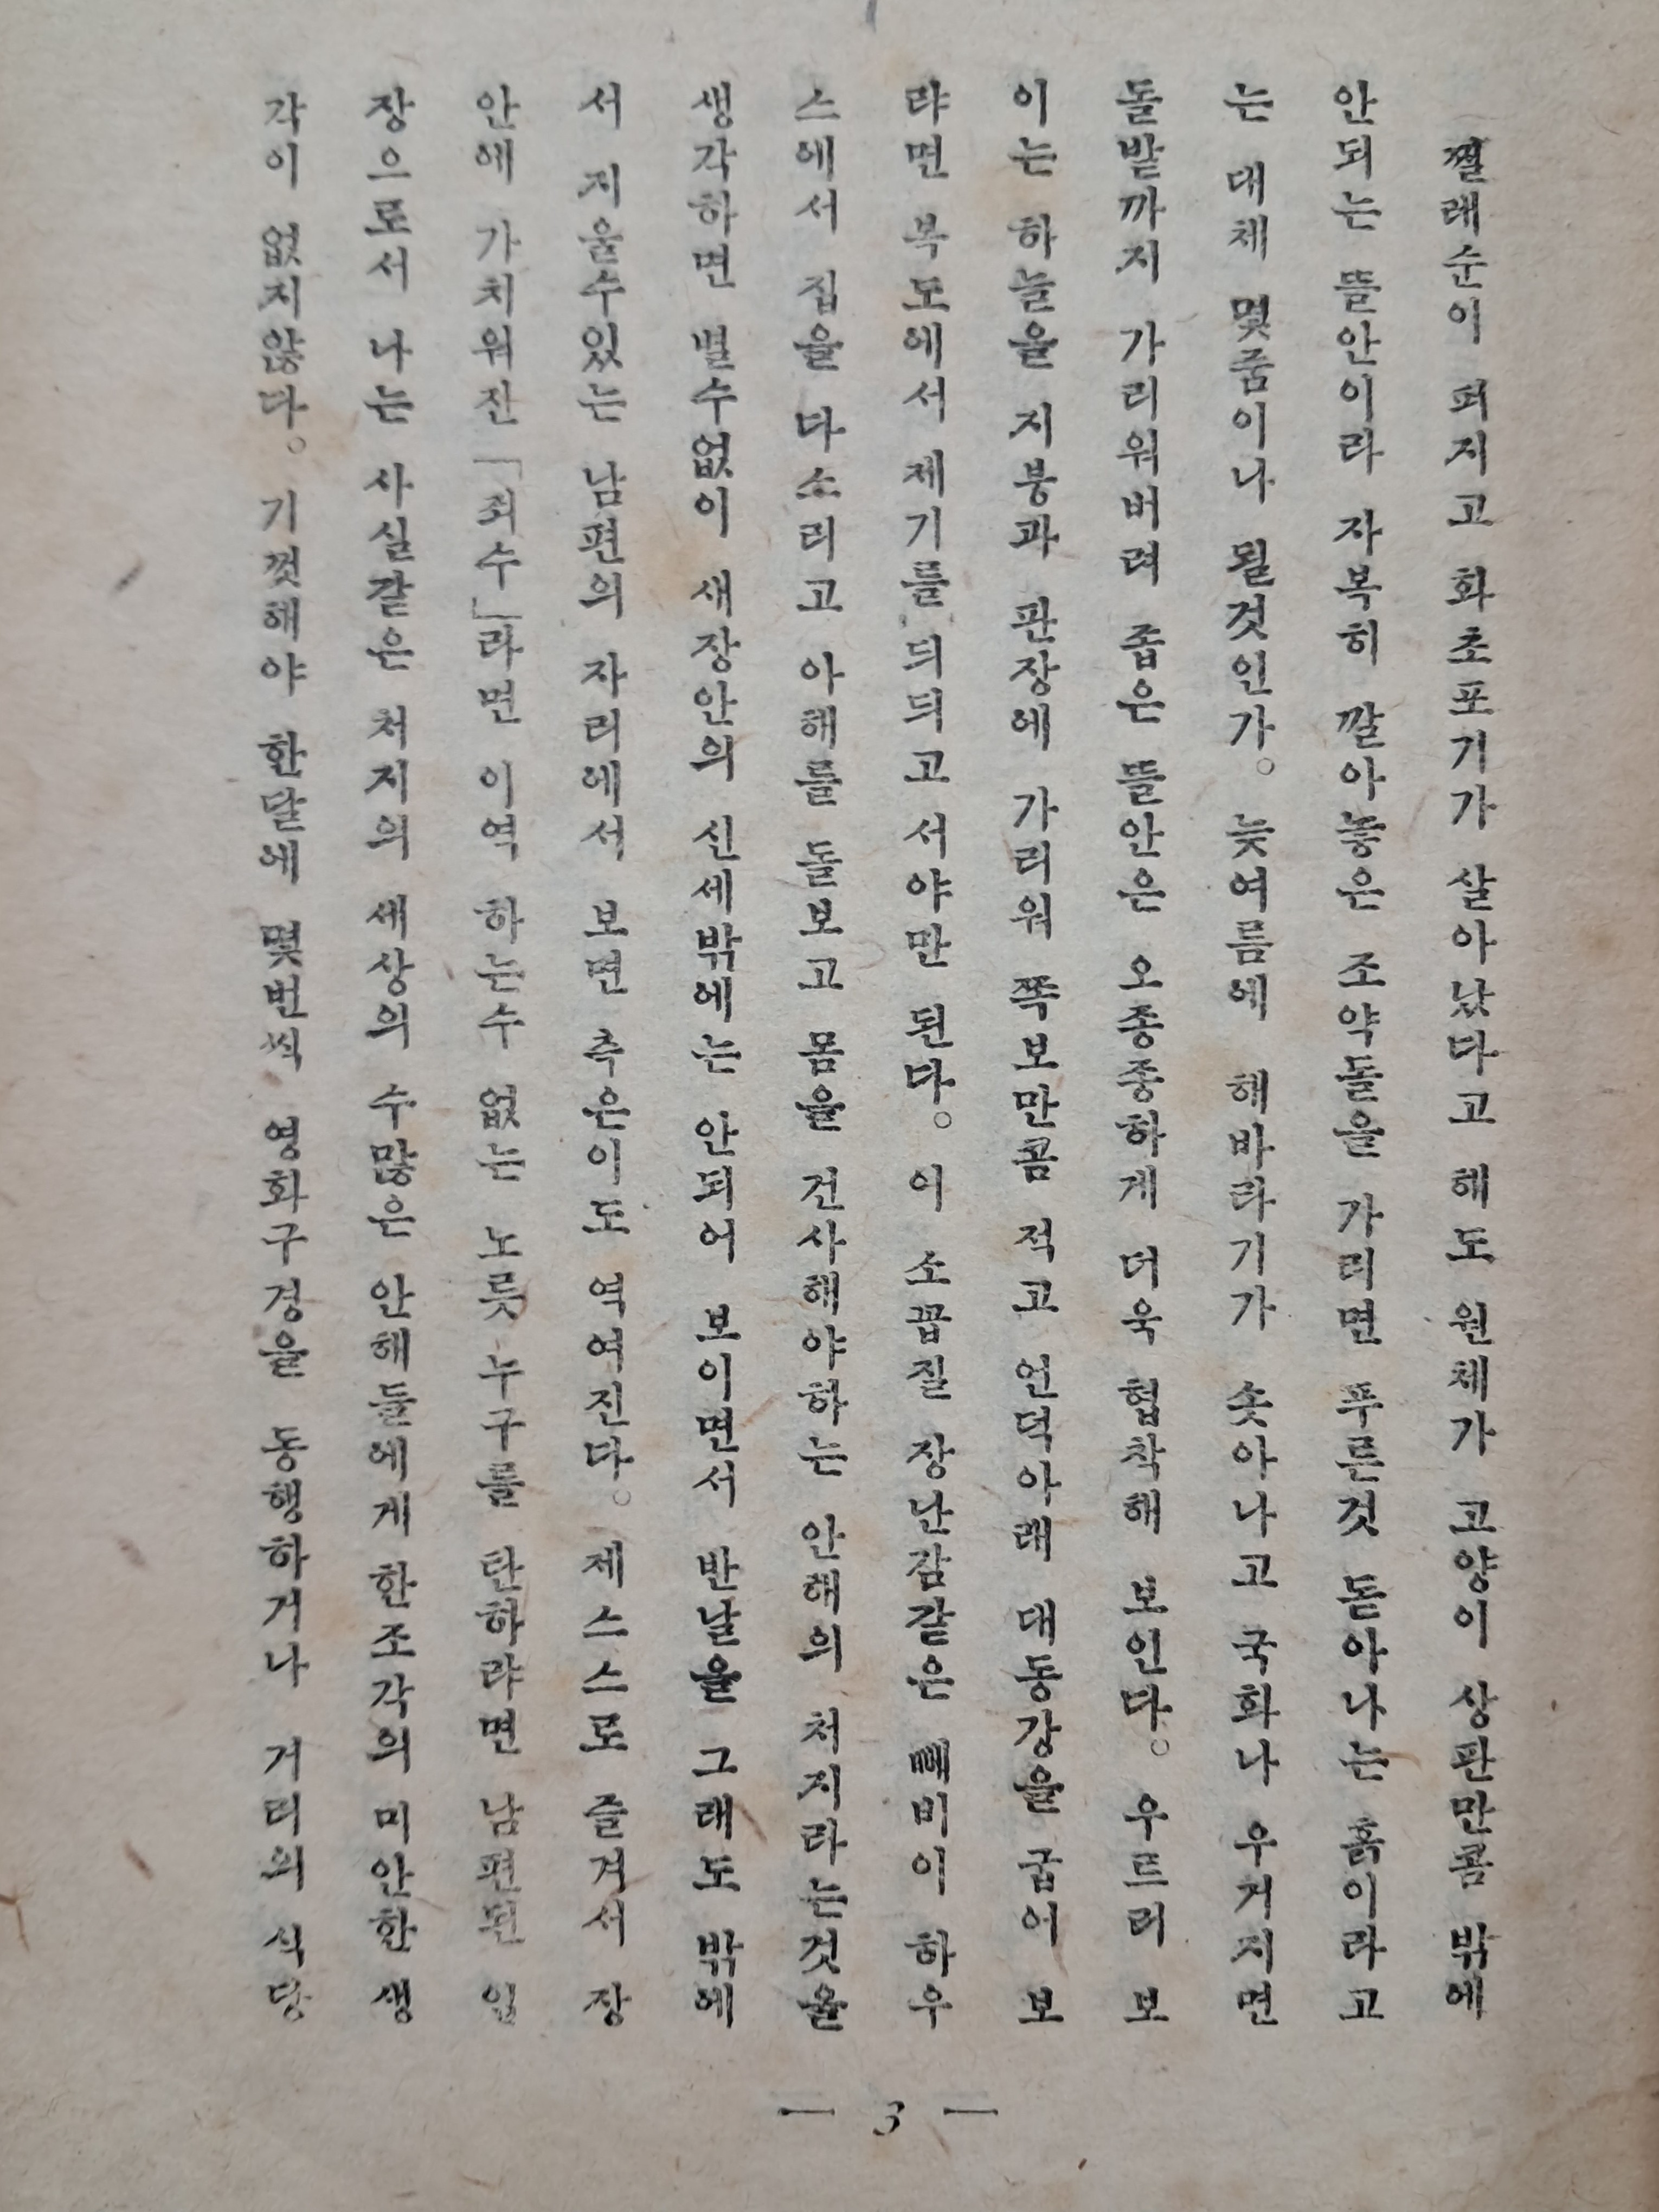 찔래순이 퍼지고 화초포기가 살아났다고 해도 원체가 고양이 상판만콤 밖에
안되는 뜰안이라 자복히 깔아놓은 조약돌을 가리면 푸른것 돋아나는 흙이라고
는 대체 몇줌이나 될것인가。늦여름에 해바라기가 솟아나고 국화나 우거지면
돌밭까지 가리워버려 좁은 뜰안은 오종종하게 더욱 협착해 보인다。우드리 보
이는 하늘을 지붕과 판장에 가리워 쪽보만콤 적고 언덕아래 대동강을 굽어 보
랴면 복도에서 제기를 듸듸고 서야만 된다。이 소꼽질 장난감같은 빼비이 하우
스에서 집을 다소리고 아해를 돌보고 몸을 건사해야하는 안해의 처지라는것을
생각하면 별수없이 새장안의 신세밖에는 안되어 보이면서 반날을 그래도 밖에
서 지울수있는 남편의 자리에서 보면 측은이도 역여진다。제스스로 즐겨서 장
안에 가치워진「죄수」라면 이역 하는수 없는 노릇 누구를 탄하랴면 남편된 입
장으로서 나는 사실같은 처지의 세상의 수많은 안해들에게 한조각의 미안한 생
각이 없지않다。기껏해야 한달에 몇번씩 영화구경을 동행하거나 거리의 식당
— 3 —